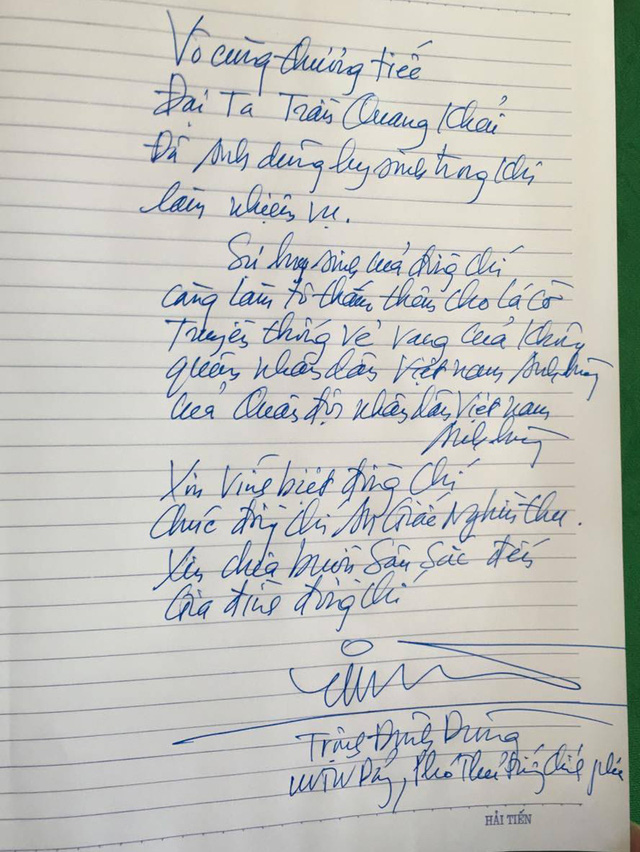 Vô cùng thương tiếc
Đại Tá Trần Quang Khải
Đã Anh dũng hy sinh trong khi
làm nhiệm vụ.
Sự hy sinh của đồng chí
càng làm tô thắm thêm cho lá cờ
Truyền thống vẻ vang của Không
quân nhân dân Việt nam Anh hùng
của Quân đội nhân dân Việt nam
Anh hùng
Xin Vĩnh biệt đồng chí
Chúc đồng chí An Giấc Nghìn thu.
Xin chia buồn Sâu Sắc đến
Gia đình đồng chí
Trịnh Đình Dũng
UVTW Đảng, Phó Thủ tướng Chính phủ
HẢI TIẾN